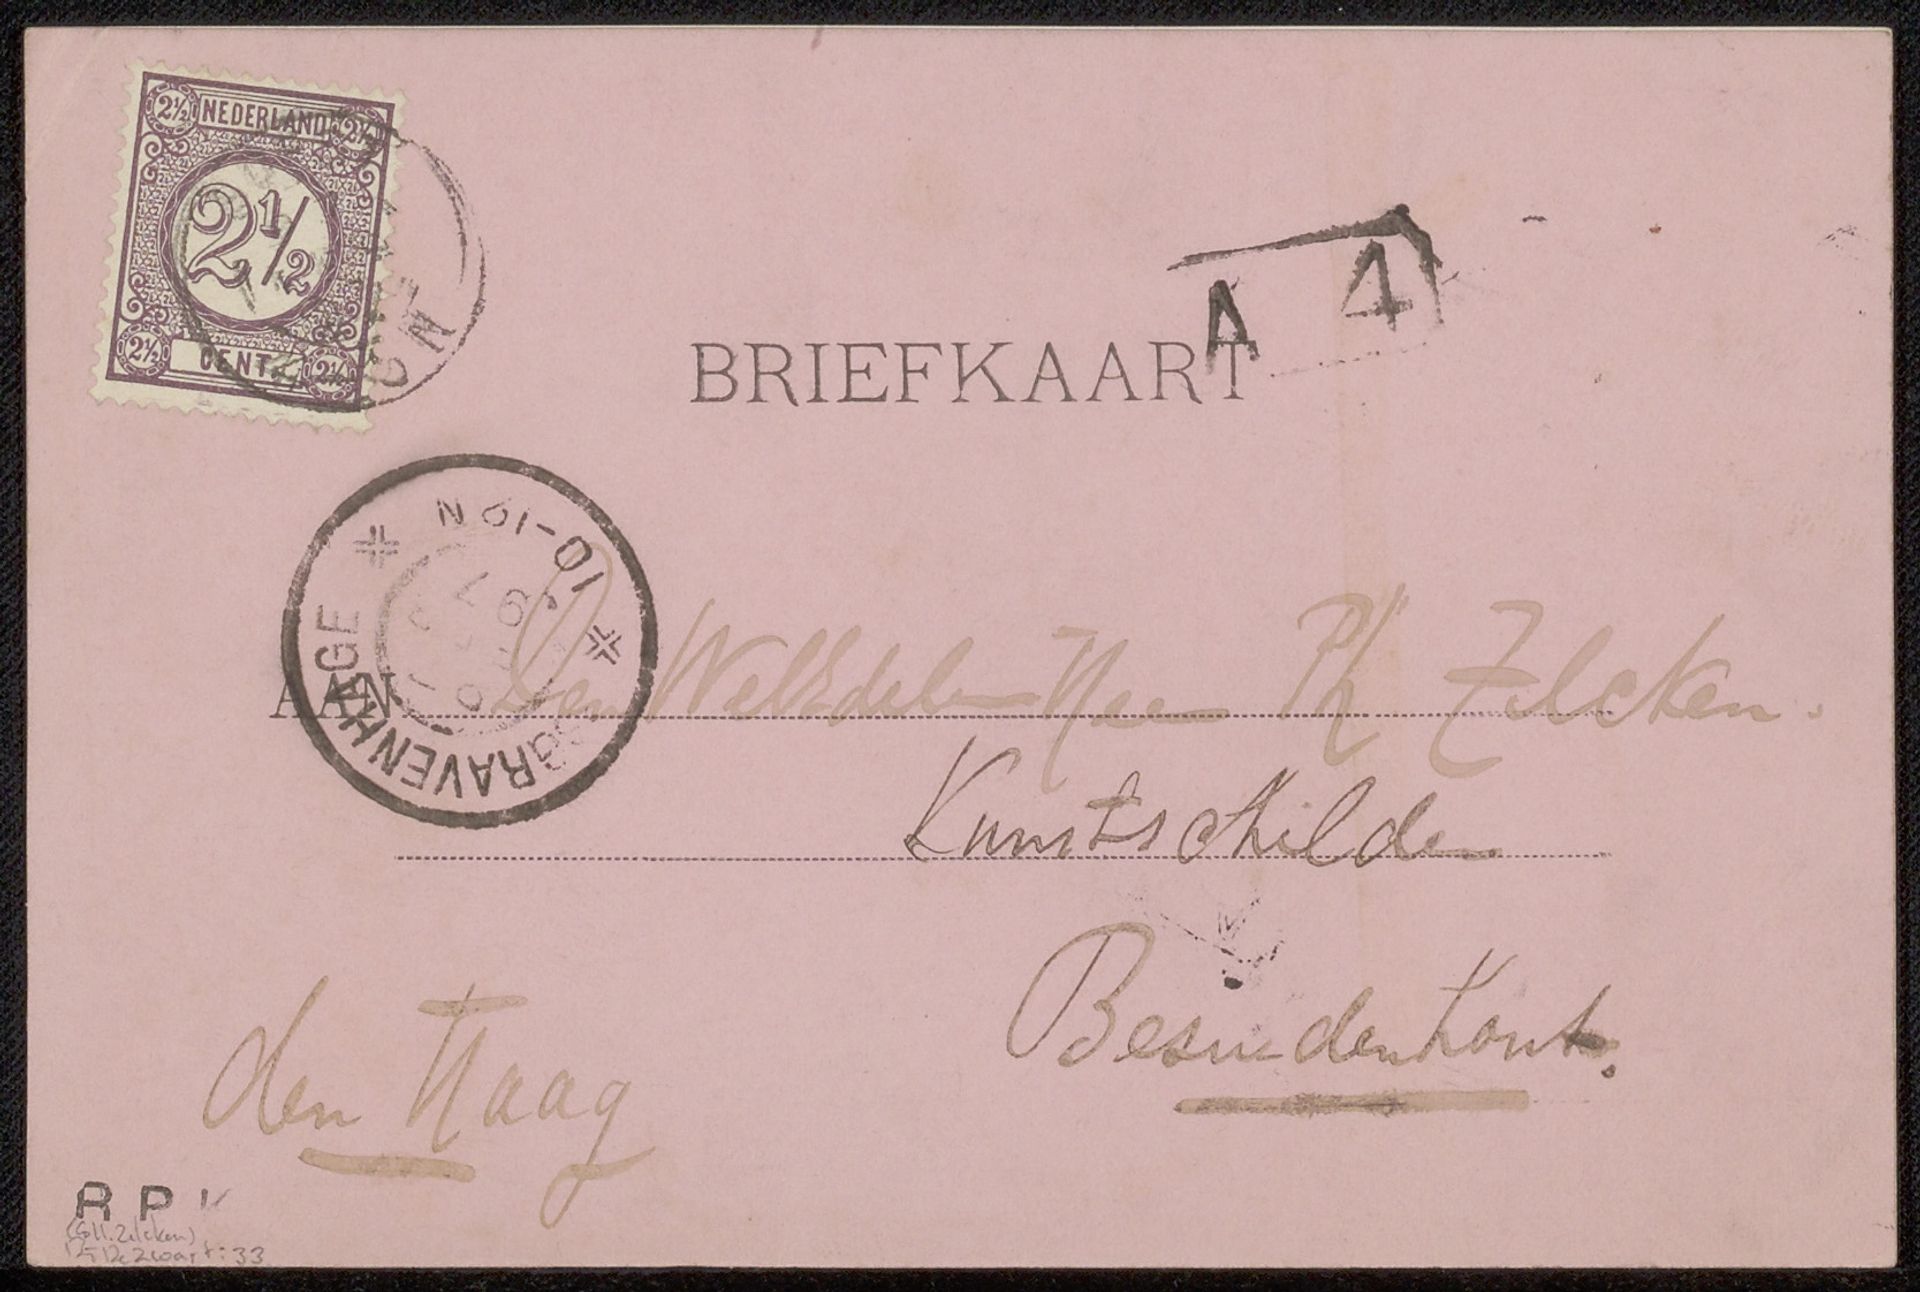 2½ NEDERLAND 2½
2½
2½ CENT 2½
A 4
BRIEFKAART
10-12N
'S GRAVENHAGE
AAN Den WelEdelen Heer Ph Zilcken.
Kunstschilder
Besuidenhout.
den Haag
R P K
(Coll. Zilcken)
De Zwart: 33